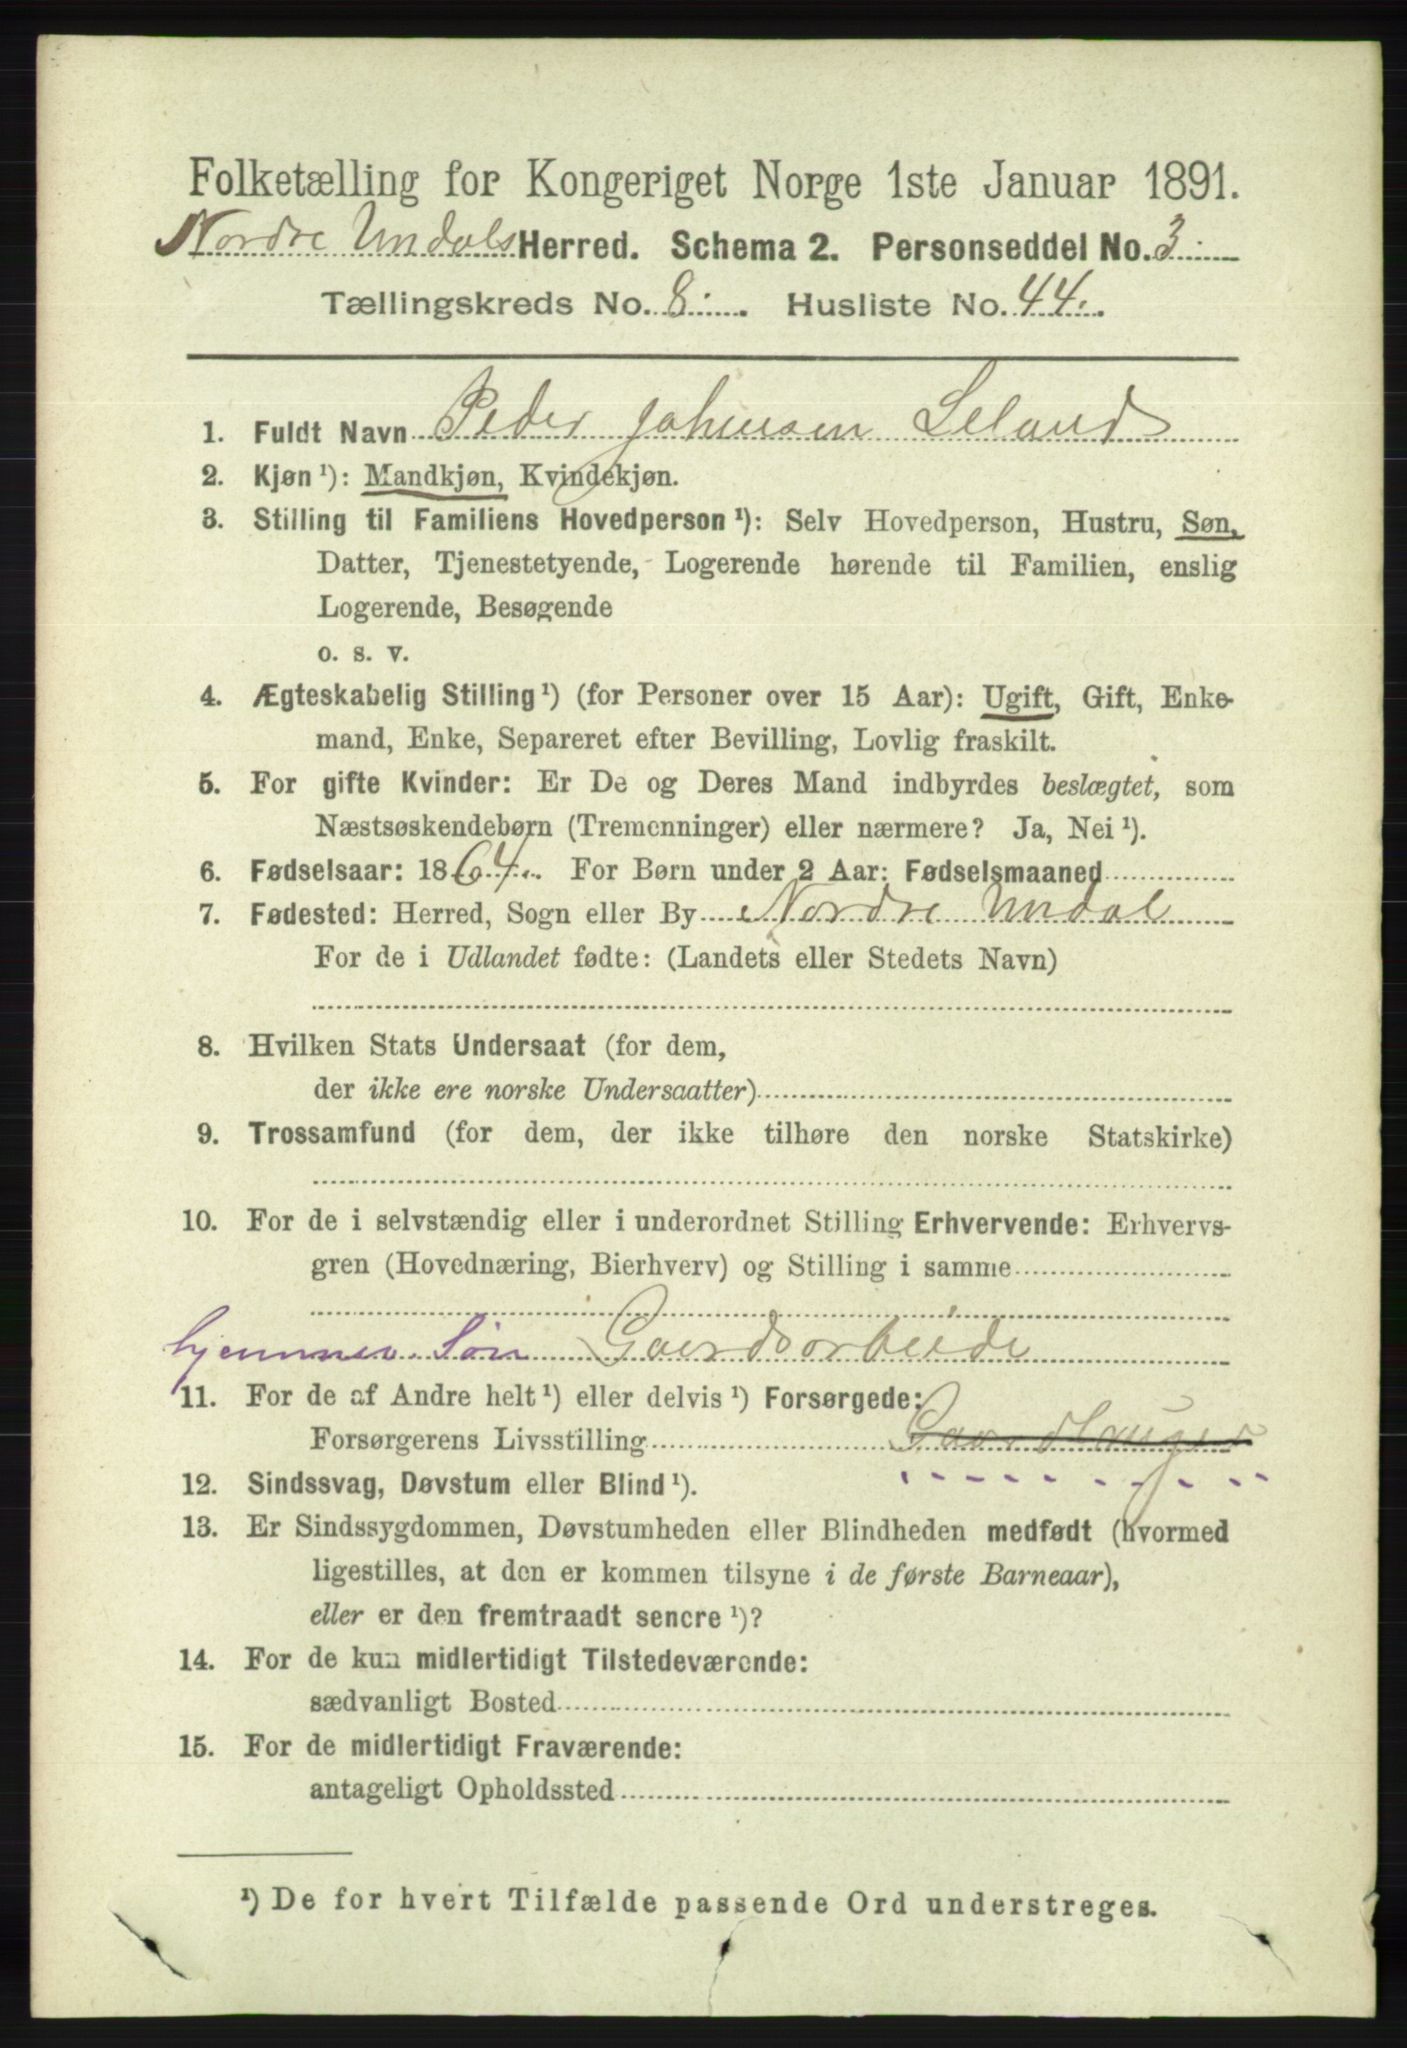 Folketælling for Kongeriget Norge 1ste Januar 1891.
Nordre Undals Herred. Schema 2. Personseddel No. 3.
Tællingskreds No. 8. Husliste No. 44.
1. Fuldt Navn Peder Johnsen Leland
2. Kjøn ¹): Mandkjøn, Kvindekjøn.
3. Stilling til Familiens Hovedperson ¹): Selv Hovedperson, Hustru, Søn,
Datter, Tjenestetyende, Logerende hørende til Familien, enslig
Logerende, Besøgende
o. s. v.
4. Ægteskabelig Stilling ¹) (for Personer over 15 Aar): Ugift, Gift, Enke-
mand, Enke, Separeret efter Bevilling, Lovlig fraskilt.
5. For gifte Kvinder: Er De og Deres Mand indbyrdes beslægtet, som
Næstsøskendebørn (Tremenninger) eller nærmere? Ja, Nei ¹).
6. Fødselsaar: 1864. For Børn under 2 Aar: Fødselsmaaned
7. Fødested: Herred, Sogn eller By Nordre Undal
For de i Udlandet fødte: (Landets eller Stedets Navn)
8. Hvilken Stats Undersaat (for dem,
der ikke ere norske Undersaatter)
9. Trossamfund (for dem, der ikke tilhøre den norske Statskirke)
10. For de i selvstændig eller i underordnet Stilling Erhvervende: Erhvervs-
gren (Hovednæring, Bierhverv) og Stilling i samme
hjemmev. Søn Gaardsarbeide
11. For de af Andre helt ¹) eller delvis ¹) Forsørgede:
Forsørgerens Livsstilling Gaardbruger
12. Sindssvag, Døvstum eller Blind ¹).
13. Er Sindssygdommen, Døvstumheden eller Blindheden medfødt (hvormed
ligestilles, at den er kommen tilsyne i de første Barneaar),
eller er den fremtraadt senere ¹)?
14. For de kun midlertidigt Tilstedeværende:
sædvanligt Bosted
15. For de midlertidigt Fraværende:
antageligt Opholdssted
¹) De for hvert Tilfælde passende Ord understreges.